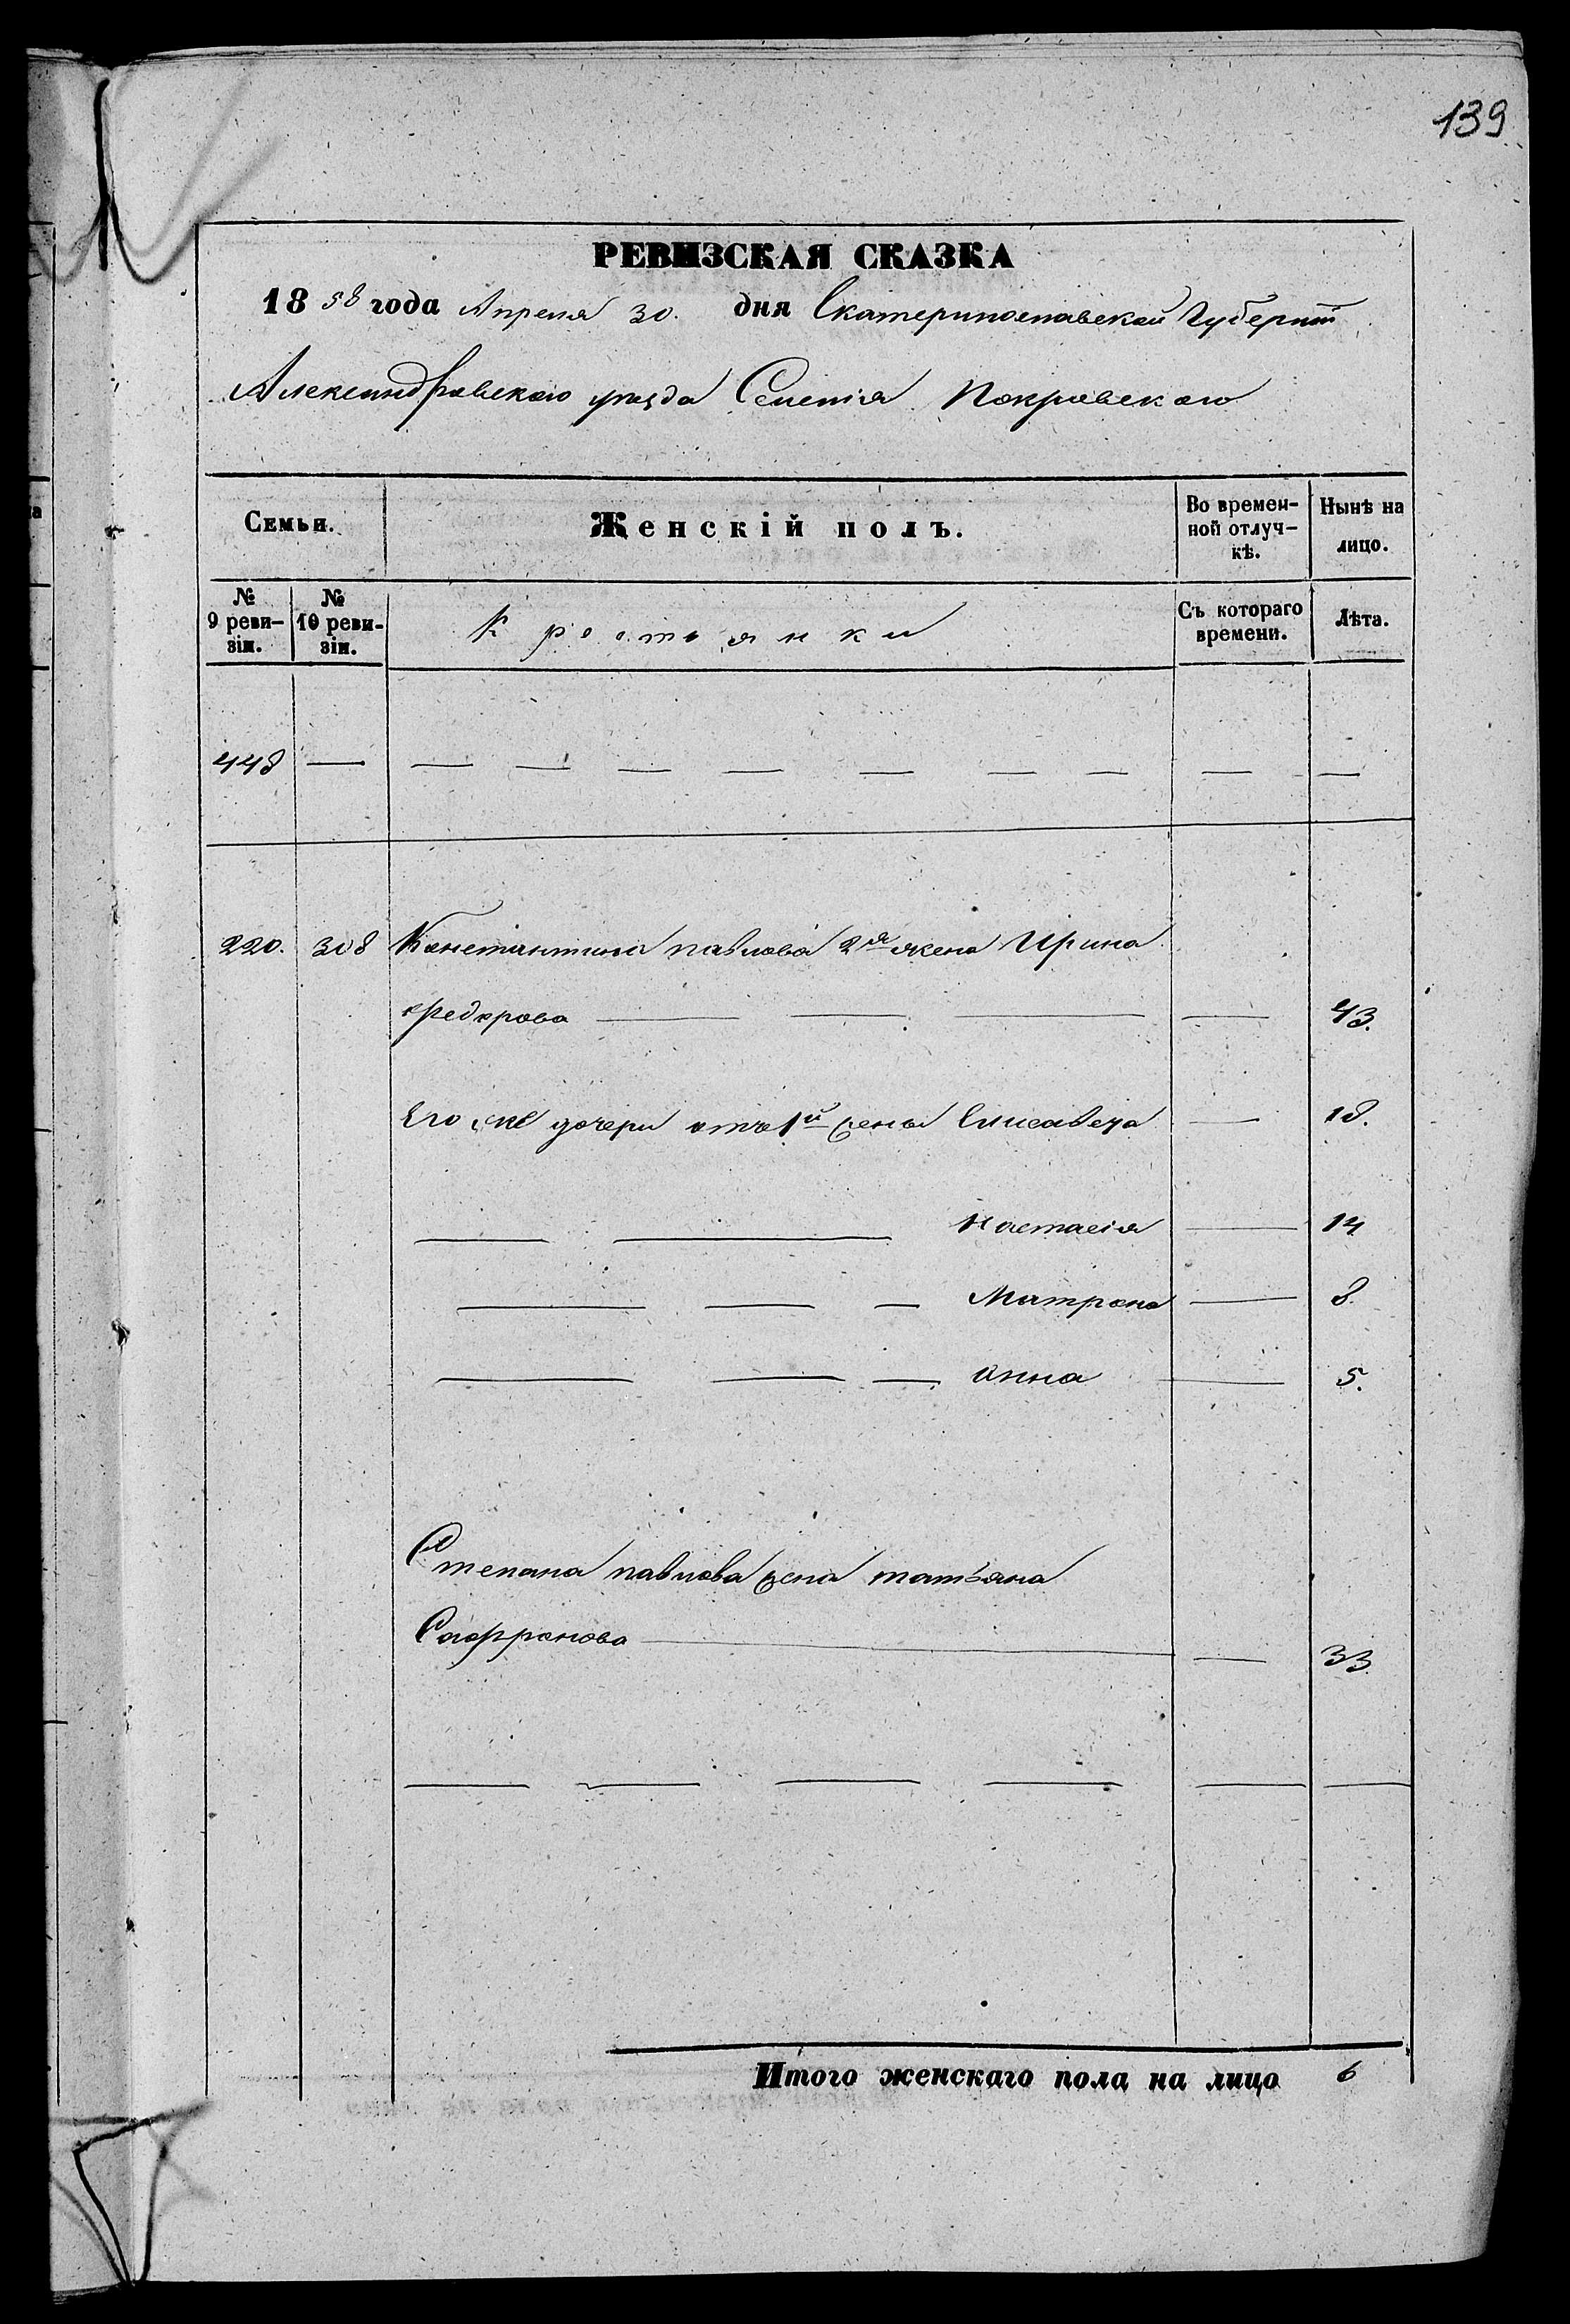 139
РЕВИЗСКАЯ СКАЗКА
1858 года Апреля 30. дня Екатеринославской Губерніи
Александровскаго уѣзда Селенія Покровскаго
Семьи.
Женскій полъ.
Во времен-
ной отлуч-
кѣ.
Нынѣ на
лицо.
№
9 реви-
зіи.
№
10 реви-
зіи.
Крестьянки
Съ котораго
времени.
Лѣта.
448 — — — — — — — — — — —
220. 308 Константина павлова 2я жена Ирина
Федорова — — — — 43.
Его же дочери отъ 1й жены Елисавета — 18.
— — Настасія — 14
— — — Матрона — 8.
— — — анна — 5.
Степана павлова жена татьяна
Сафронова — — 33
— — — — — —
Итого женскаго пола на лицо 6